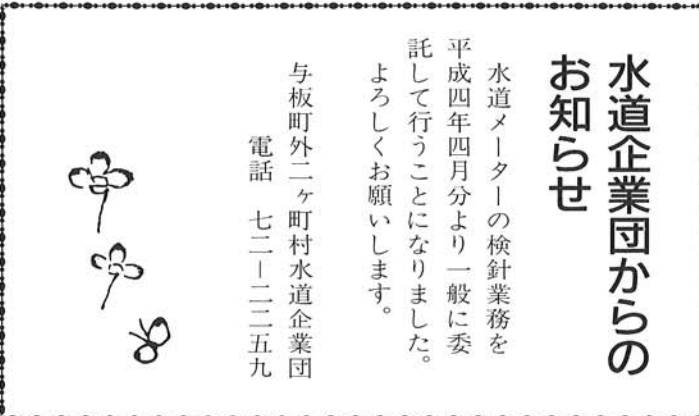 水道企業団からの
お知らせ
水道メーターの検針業務を
平成四年四月分より一般に委
託して行うことになりました。
よろしくお願いします。
与板町外二ヶ町村水道企業団
電話 七二ー二二五九